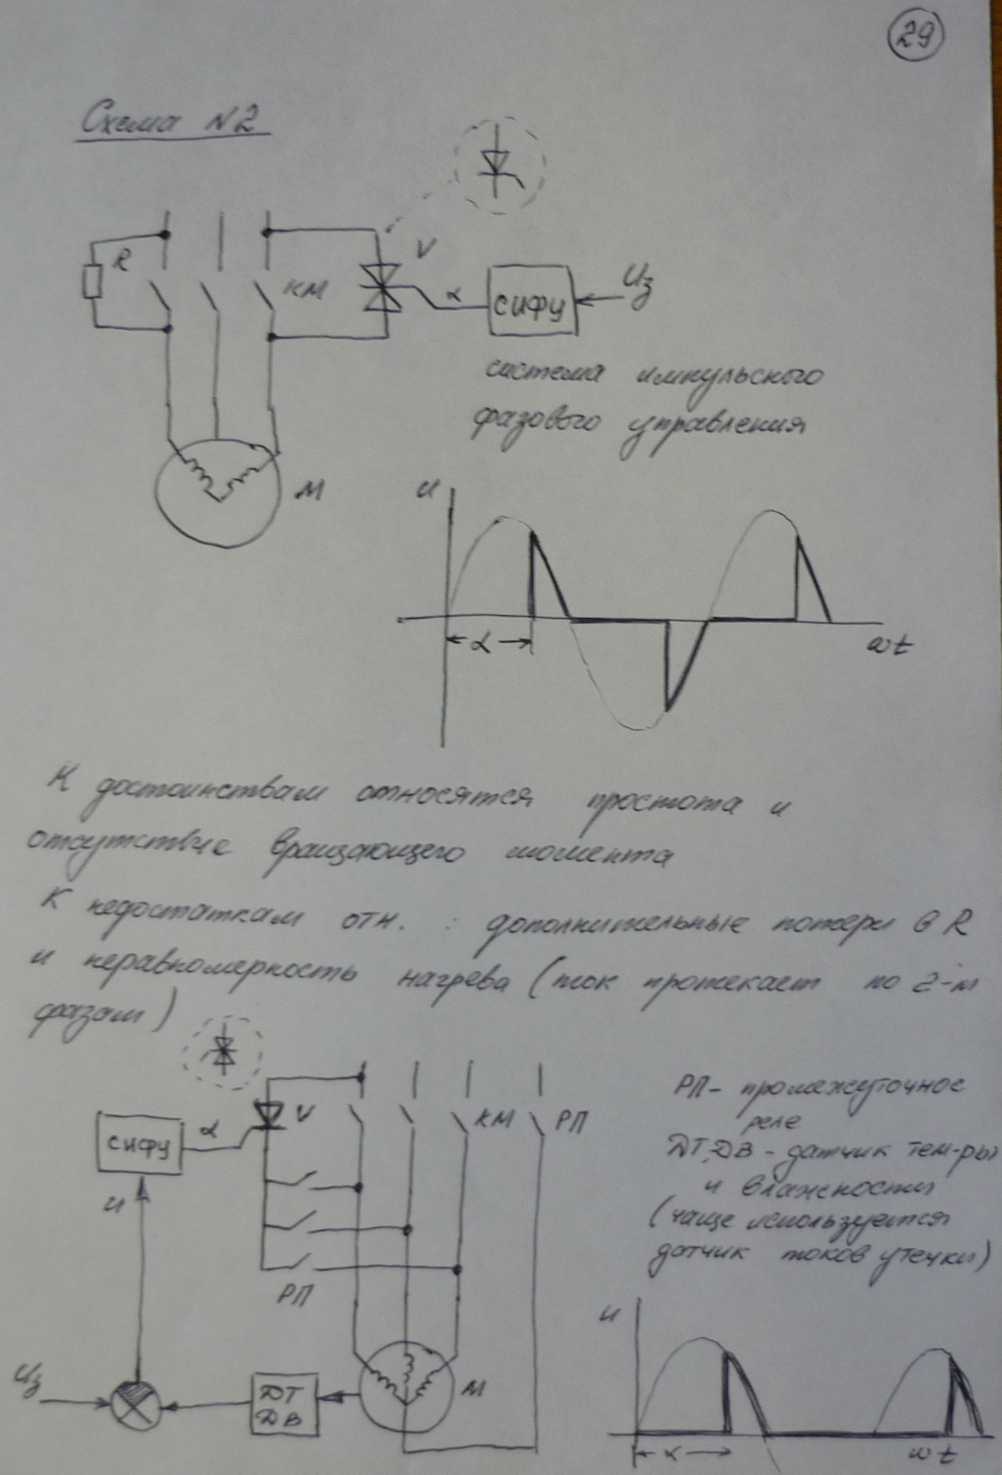 29
Схема N2
R
КМ
V
α
СИФУ
Uз
система импульсного
фазового управления
М
u
α
ωt
К достоинствам относятся простота и
отсутствие вращающего момента
К недостаткам отн. : дополнительные потери в R
и неравномерность нагрева (ток протекает по 2-м
фазам)
СИФУ
α
V
КМ
РП
РП- промежуточное
реле
ДТ, ДВ - датчик тем-ры
и влажности
(чаще используется
датчик токов утечки)
u
РП
Uз
ДТ
ДВ
М
u
α
ωt